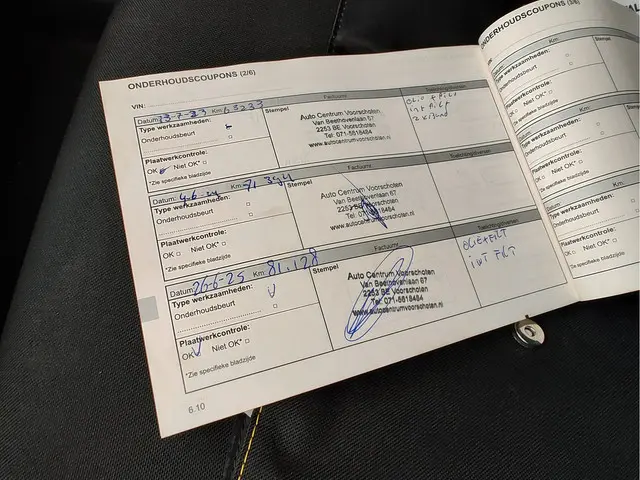 ONDERHOUDSCOUPONS (2/6)
VIN:
Datum: 13-7-23 Km:
Type werkzaamheden:
Onderhoudsbeurt
Plaatwerkcontrole:
OK Niet OK*
*Zie specifieke bladzijde
Factuurnr.
Stempel
Auto Centrum Voorschoten
Van Beethovenlaan 67
2253 BE Voorschoten
Tel: 071-5618484
www.autocentrumvoorschoten.nl
Olie + Filt
int Filt
Datum: Km: 71
Type werkzaamheden:
Onderhoudsbeurt
Plaatwerkcontrole:
OK Niet OK*
*Zie specifieke bladzijde
Factuurnr.
Stempel
Auto Centrum Voorschoten
Van Beethovenlaan 67
2253 BE Voorschoten
Tel: 071-5618484
www.autocentrumvoorschoten.nl
Datum: 26-6-25 Km: 81.128
Type werkzaamheden:
Onderhoudsbeurt
Plaatwerkcontrole:
OK Niet OK*
*Zie specifieke bladzijde
Factuurnr.
Stempel
Auto Centrum Voorschoten
Van Beethovenlaan 67
2253 BE Voorschoten
Tel: 071-5618484
www.autocentrumvoorschoten.nl
OLIE+FILT
int FILT
6.10
ONDERHOUDSCOUPONS (3/6)
VIN:
Datum:
Type werkzaamheden:
Onderhoudsbeurt
Plaatwerkcontrole:
OK Niet OK*
*Zie specifieke bladzijde
Datum:
Type werkzaamheden:
Onderhoudsbeurt
Plaatwerkcontrole:
OK Niet OK*
*Zie specifieke bladzijde
Datum:
Type werkzaamheden:
Onderhoudsbeurt
Plaatwerkcontrole:
OK Niet OK*
*Zie specifieke bladzijde